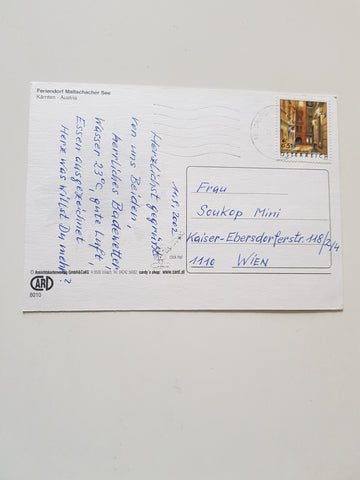 Feriendorf Maltschacher See
Kärnten - Austria
€ 0,51
ÖSTERREICH
11.8.2002
Herzlichst gegrüßt
von uns Beiden,
Herrliches Badewetter
Wasser 23°C, gute Luft,
Essen ausgezeichnet
Herz was willst Du mehr?
Frau
Soukop Mini
Kaiser-Ebersdorferstr. 118/2/4
1110 WIEN
CARD
8010
www.card.at